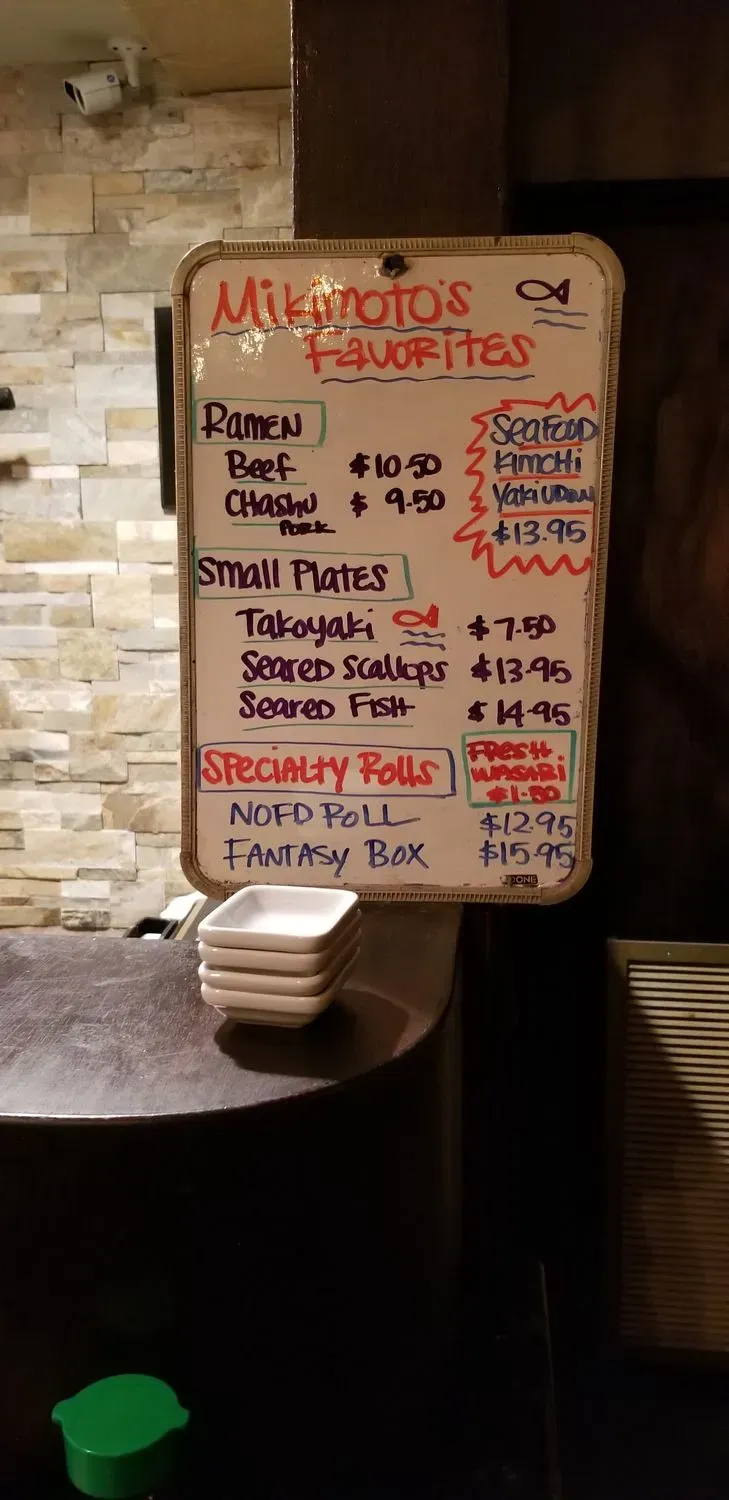 Mikimoto's
Favorites
Ramen
Beef $10.50
Chashu $ 9.50
Pork
Seafood
Kimchi
Yakiudon
$13.95
Small Plates
Takoyaki $7.50
Seared Scallops $13.95
Seared Fish $14.95
Specialty Rolls
Fresh
Wasabi
$1.50
NOFD Roll $12.95
Fantasy Box $15.95